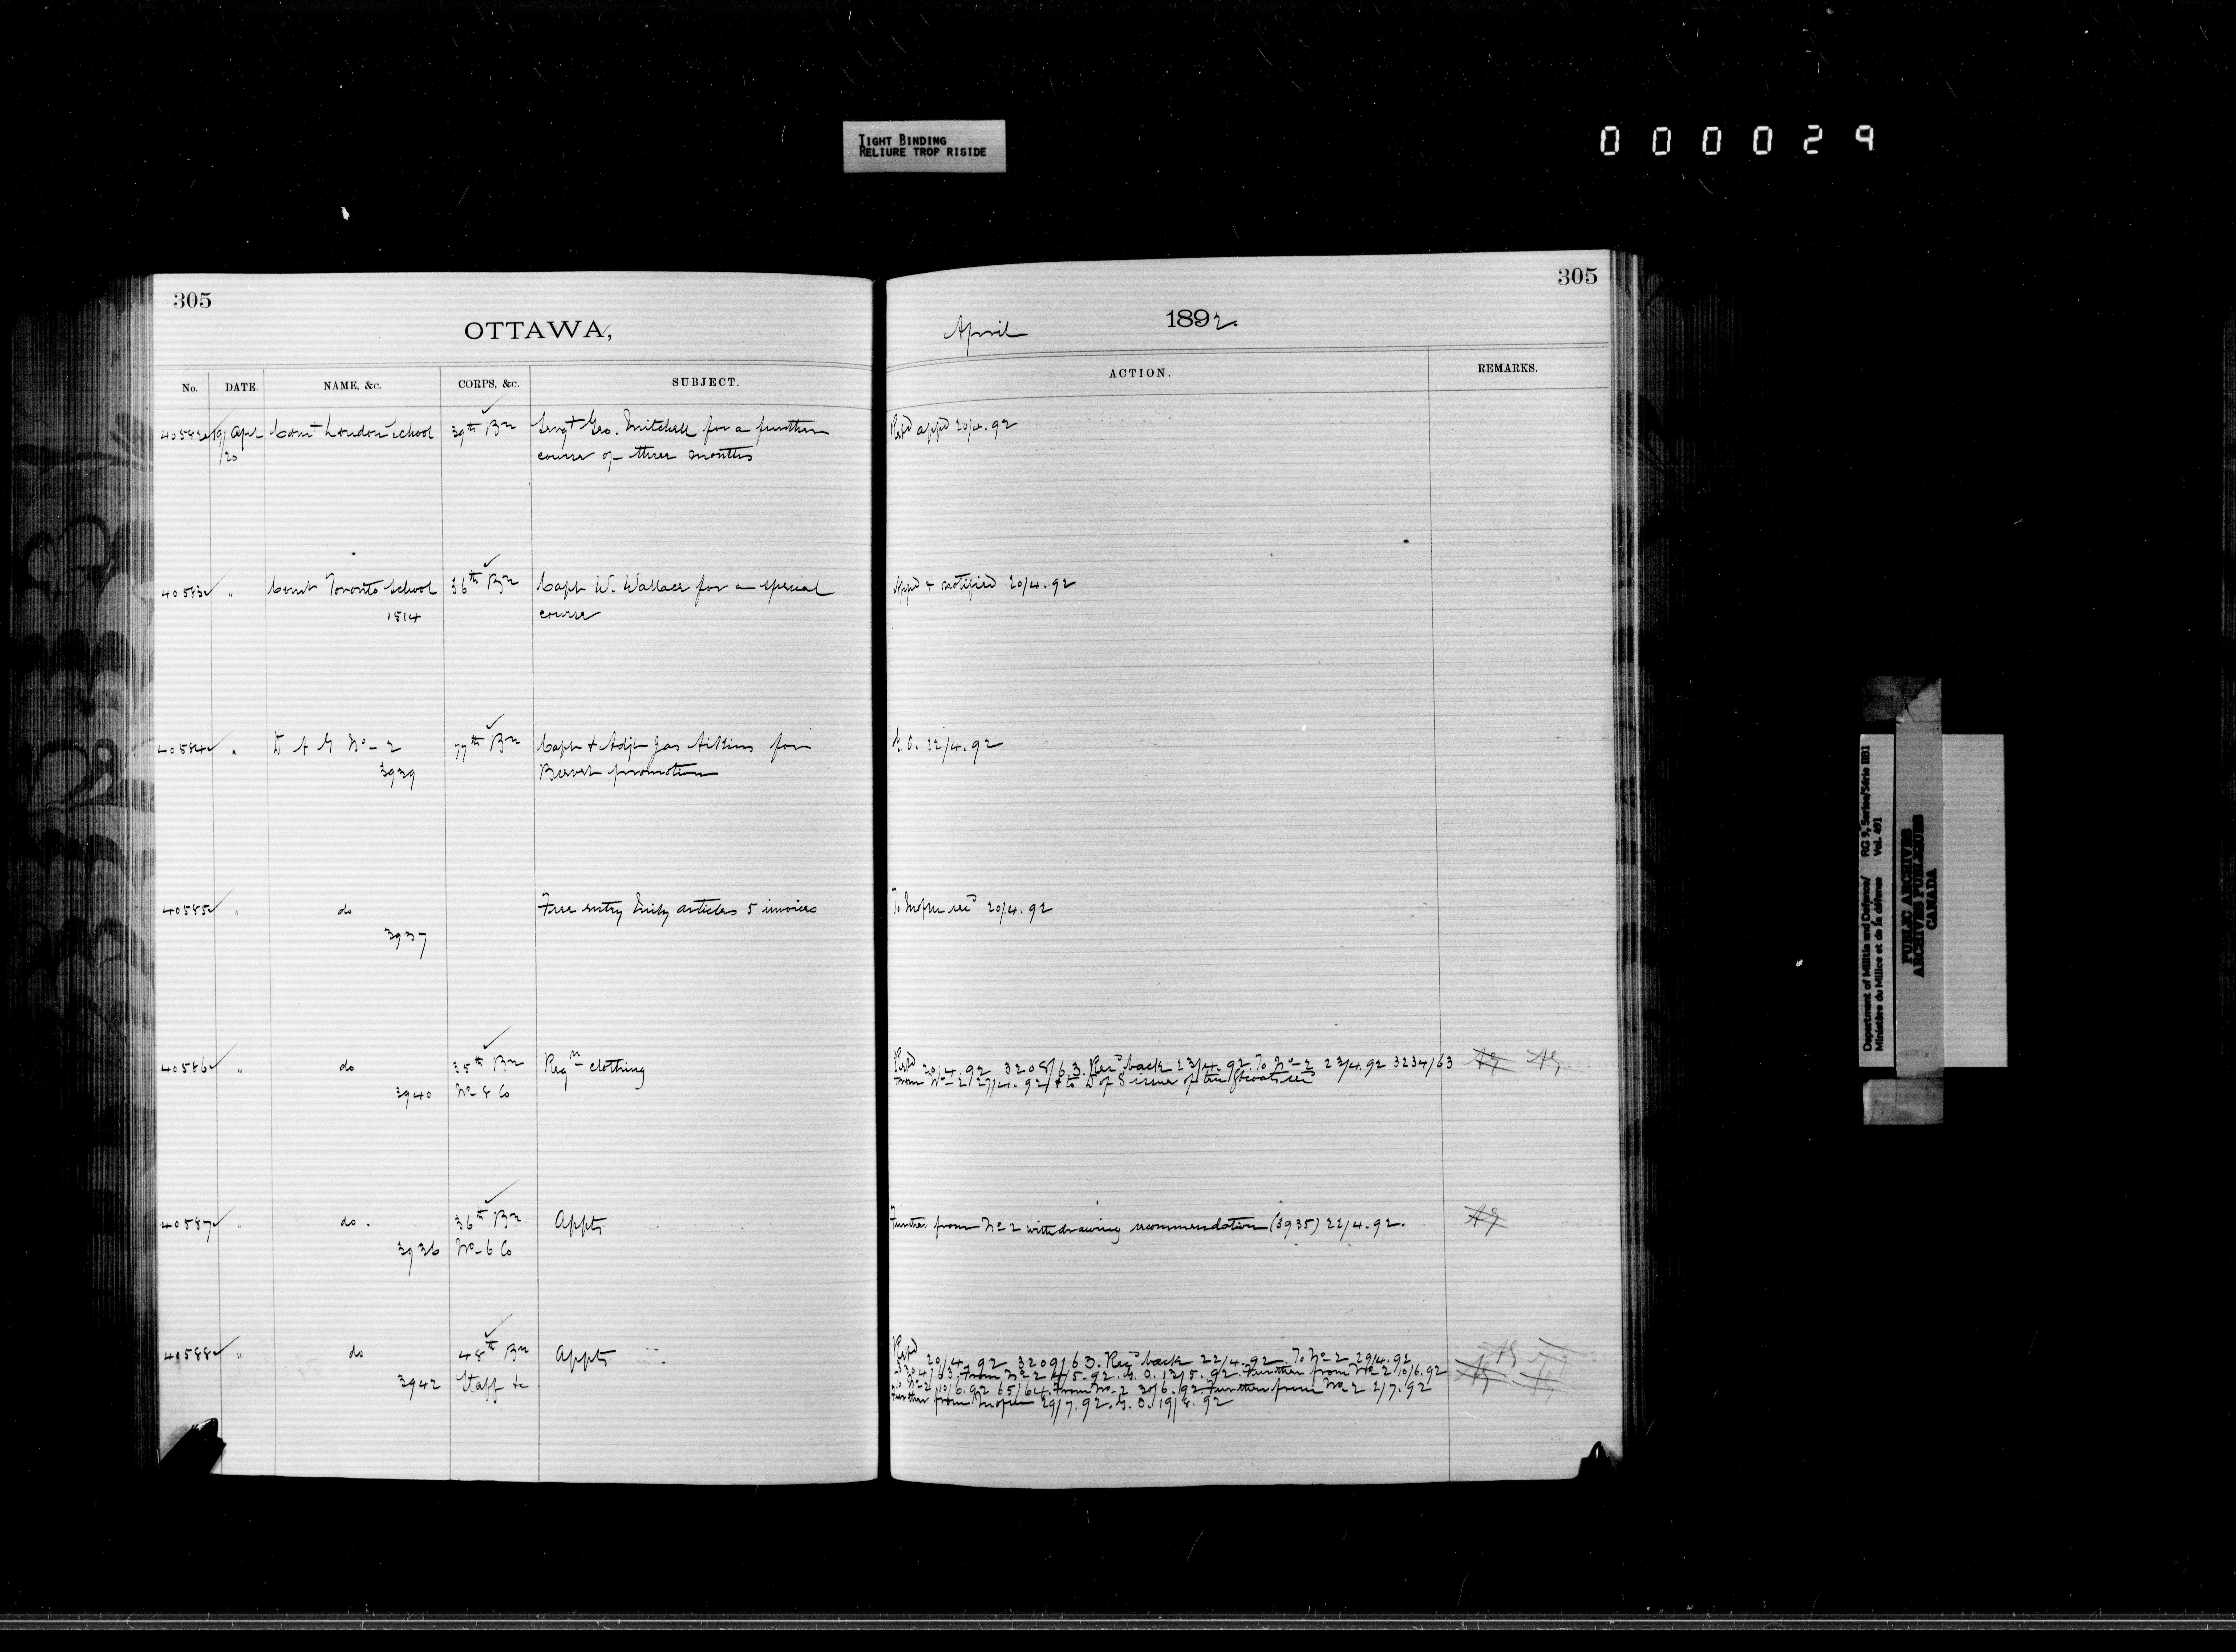 TIGHT BINDING
RELIURE TROP RIGIDE
000029
305
OTTAWA,
No. DATE. NAME, &c. CORPS, &c. SUBJECT.
40582 19/ Apr Comt London School 39th Bn Sergt Geo. Mitchell for a further
/20 course of three months
40583 " Comt Toronto School 36th Bn Capt W. Wallace for a special
1814 course
40584 " D A G No 2 77th Bn Capt & Adjt Jas Aikins for
3939 Brevet promotion
40585 " do Free entry articles 5 invoices
3937
40586 " do 35th Bn Reqn clothing
3940 No 8 Co
40587 " do. 36th Bn Appts
3936 No 6 Co
40588 " do 48th Bn Appts
3942 Staff &c
305
April 1892.
ACTION. REMARKS.
Retd appd 20/4.92
Appd & notified 20/4.92
G.O. 22/4.92
To 20/4.92
Retd 20/4.92 3208/63. Recd back 23/4.92. To No 2 23/4.92 3234/63 AG AG
from No 2 27/4.92 & to D of S issue of
Further from No 2 withdrawing recommendation (3935) 22/4.92. AG
Retd 20/4.92 3209/63. Recd back 22/4.92. To No 2 29/4.92
From No 2 4/5.92. G.O. 13/5.92. Further from No 2 10/6.92
To No 2 10/6.92 65/64. From No 2 30/6.92 Further from No 2 2/7.92
Further from 29/7.92. G.O. 19/8.92
Department of Militia and Defence/ RG 9, Series/Série IIB1
Ministère du Milice et de la défense Vol. 491
PUBLIC ARCHIVES
ARCHIVES PUBLIQUES
CANADA